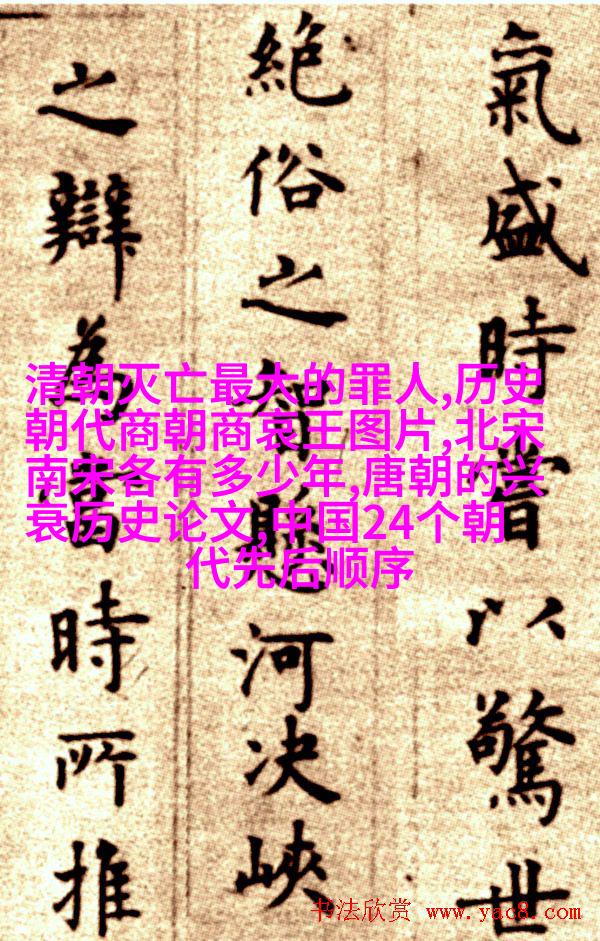 氣盛時嘗以驚世
絶俗之智縣河决峽
之辯為當時所推
清朝灭亡最大的罪人,历史
朝代商朝商哀王图片,北宋
南宋各有多少年,唐朝的兴
衰历史论文,中国24个朝
代先后顺序
书法欣赏 www.yac8.com